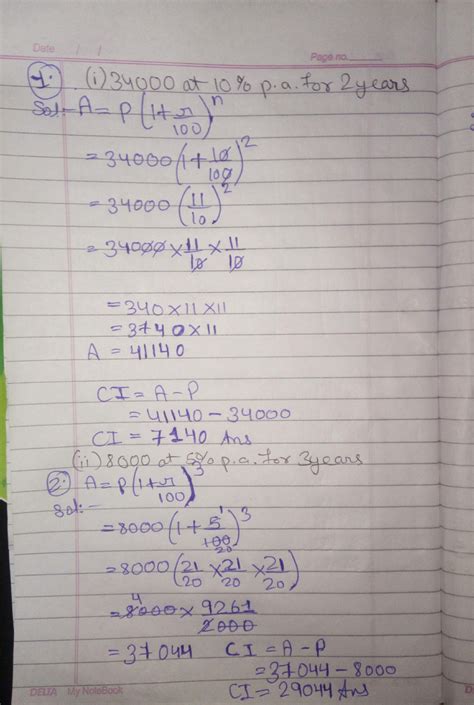 Date / / Page no.
1. (i) 34000 at 10% p.a. for 2 years
Sol:- A = P(1+r/100)^n
= 34000(1+10/100)^2
= 34000(11/10)^2
= 34000 × 11/10 × 11/10
= 340 × 11 × 11
= 3740 × 11
A = 41140
CI = A - P
= 41140 - 34000
CI = 7140 Ans
(ii) 8000 at 5% p.a. for 3 years
2. A = P(1+r/100)^3
Sol:-
= 8000(1+5/100)^3 1 20
= 8000(21/20 × 21/20 × 21/20)
= 8000 × 9261/2000 4
= 37044 CI = A - P
= 37044 - 8000
CI = 29044 Ans
DELTA My NoteBook
D